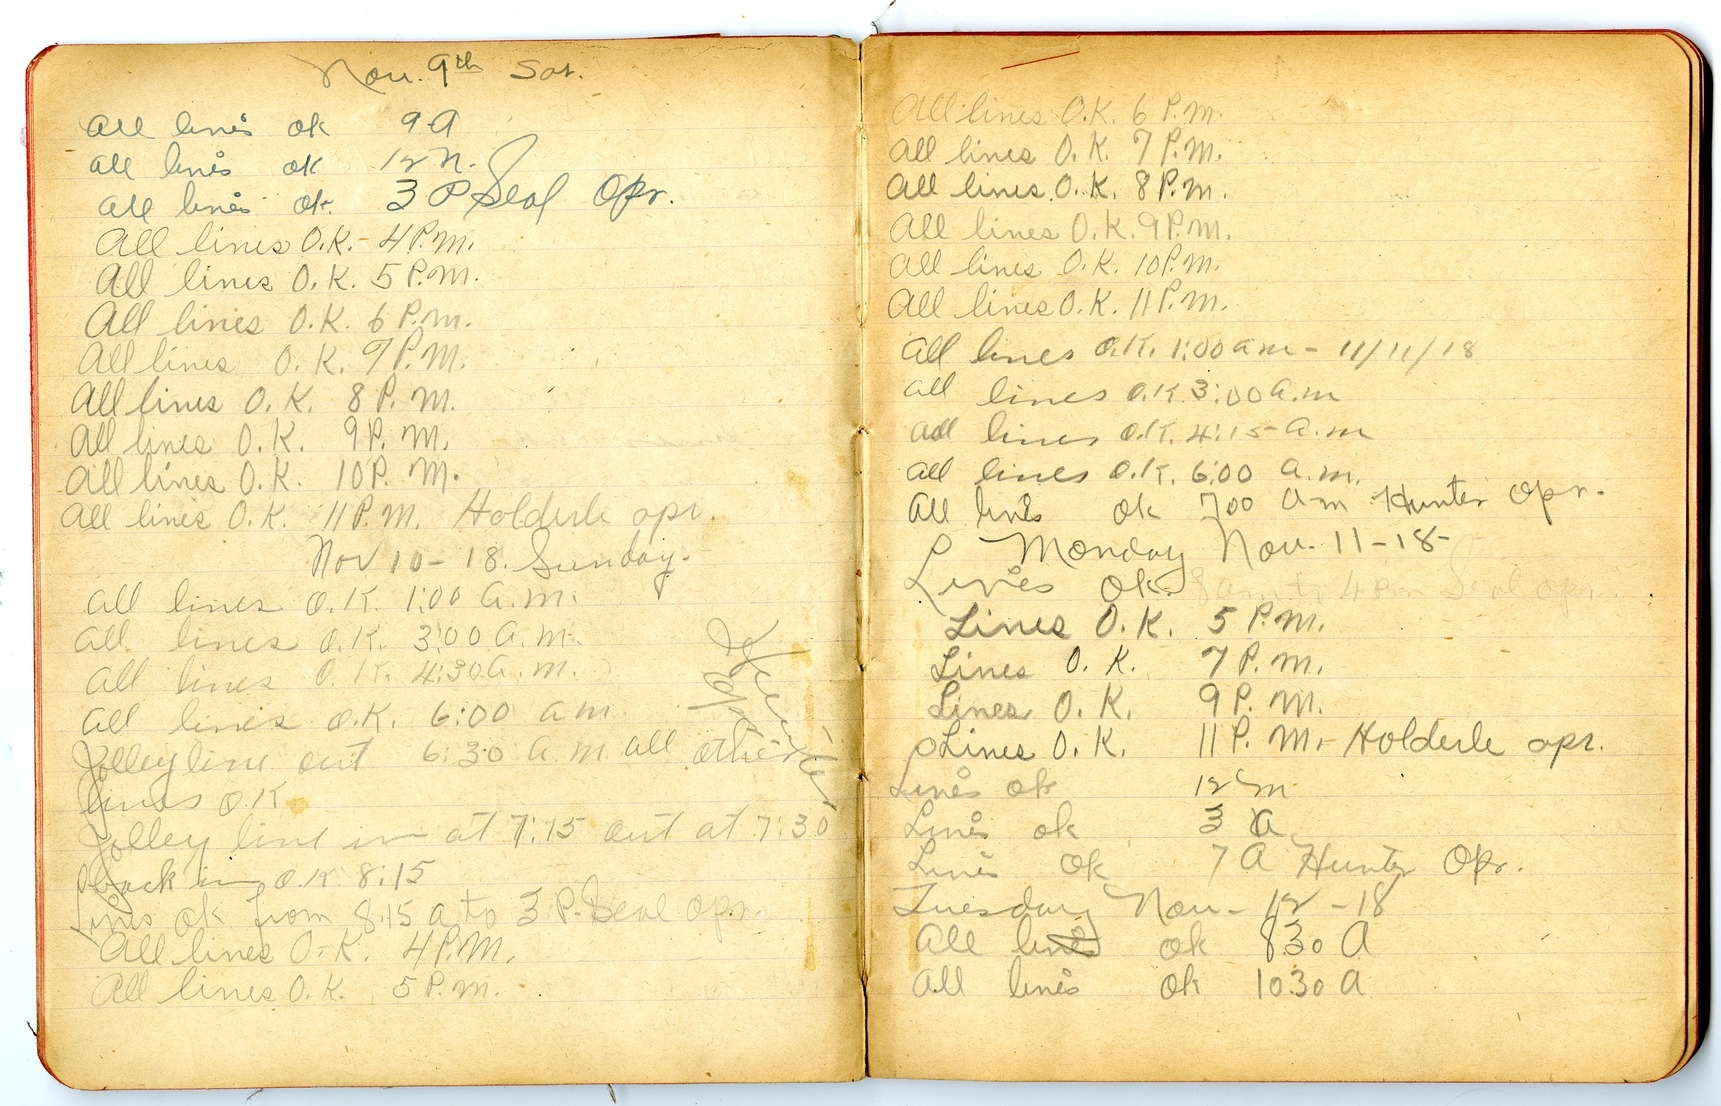 Nov. 9th Sat.
All lines ok 9 A
All lines ok 12 N.
All lines ok. 3 P Seal Opr.
All lines O.K. - 4 P.M.
All lines O.K. 5 P.M.
All lines O.K. 6 P.M.
All lines O.K. 7 P.M.
All lines O.K. 8 P.M.
All lines O.K. 9 P.M.
All lines O.K. 10 P.M.
All lines O.K. 11 P.M. Holderle opr.
Nov 10 - 18. Sunday.
All lines O.K. 1:00 A.M.
All lines O.K. 3:00 A.M.
All lines O.K. 4:30 A.M.
All lines O.K. 6:00 am
Hunter
opr
Jolley line out 6:30 a.m. all other
lines O.K.
Jolley line in at 7:15 out at 7:30
back in O.K. 8:15
Lines ok from 8:15 a to 3 P. Seal opr.
All lines O.K. 4 P.M.
All lines O.K. 5 P.M.
All lines O.K. 6 P.M.
All lines O.K. 7 P.M.
All lines O.K. 8 P.M.
All lines O.K. 9 P.M.
All lines O.K. 10 P.M.
All lines O.K. 11 P.M.
All lines O.K. 1:00 am - 11/11/18
all lines O.K 3:00 a.m
all lines O.K. 4:15 - a.m
all lines O.K. 6:00 a.m.
All lines ok 700 am Hunter opr.
Monday Nov. 11 - 18 -
Lines ok 8 am to 4 pm Seal opr.
Lines O.K. 5 P.M.
Lines O.K. 7 P.M.
Lines O.K. 9 P.M.
Lines O.K. 11 P.M. - Holderle opr.
Lines ok 12 m
Lines ok 3 A
Lines ok 7 A Hunter Opr.
Tuesday Nov - 12 - 18
All lines ok 830 A
All lines ok 1030 A